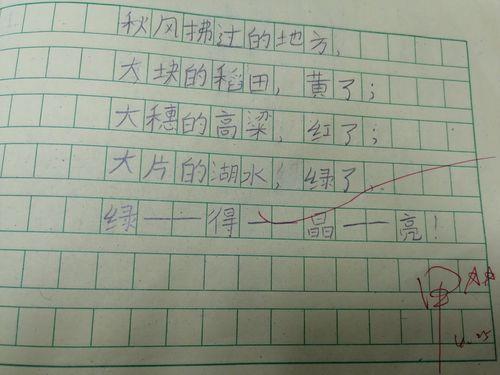 秋风拂过的地方，
大块的稻田，黄了；
大穗的高粱，红了；
大片的湖水，绿了，
绿——得——晶——亮！